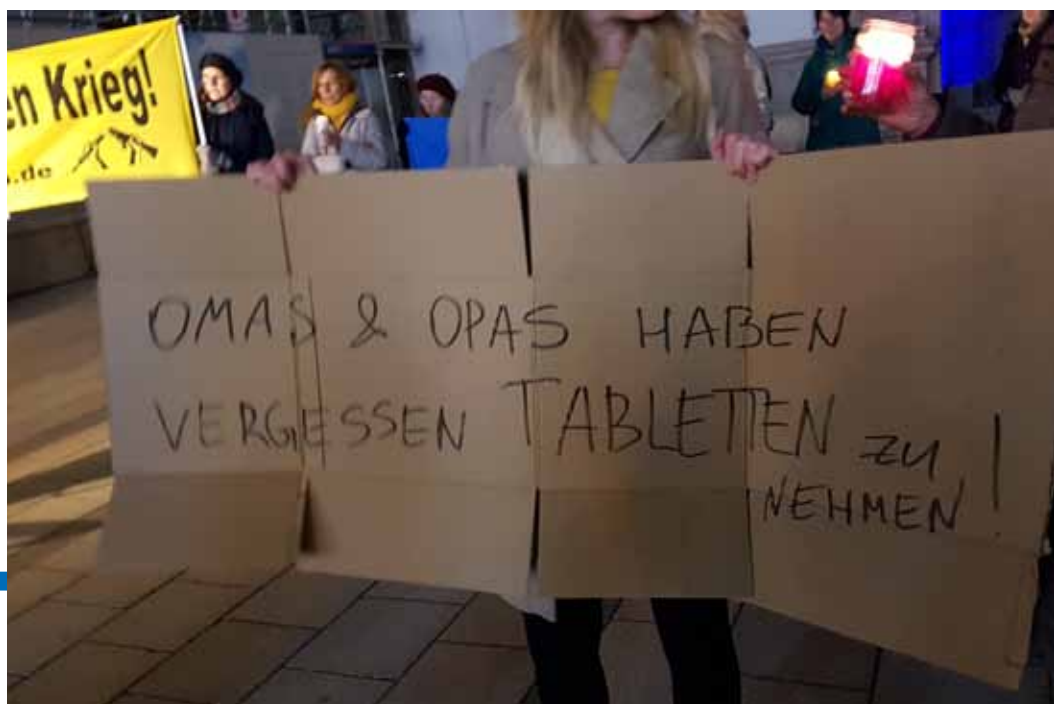 en Krieg!
.de
OMAS & OPAS HABEN
VERGESSEN TABLETTEN ZU
NEHMEN!